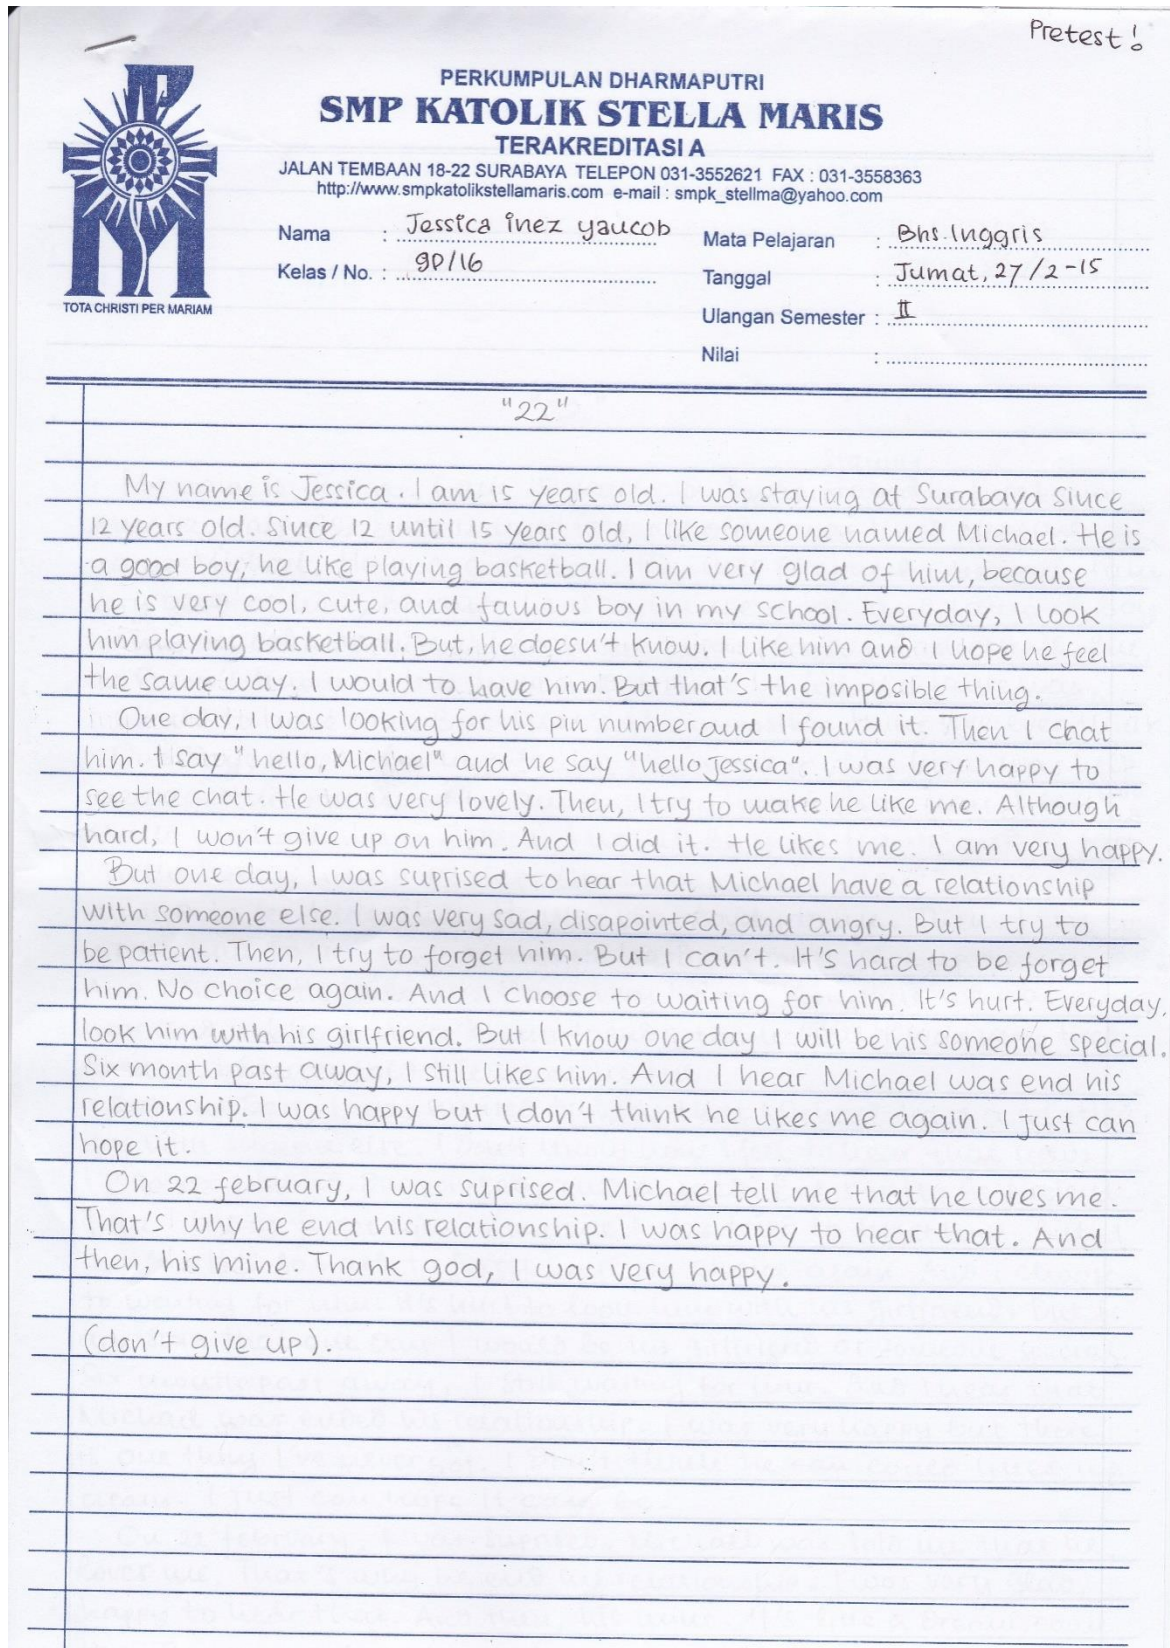 Pretest!
PERKUMPULAN DHARMAPUTRI
SMP KATOLIK STELLA MARIS
TERAKREDITASI A
JALAN TEMBAAN 18-22 SURABAYA TELEPON 031-3552621 FAX : 031-3558363
http://www.smpkatolikstellamaris.com e-mail : smpk_stellma@yahoo.com
Nama : Jessica inez yaucob
Kelas / No. : 9D/16
Mata Pelajaran : Bhs. Inggris
Tanggal : Jumat, 27/2-15
Ulangan Semester : II
Nilai :
TOTA CHRISTI PER MARIAM
"22"
My name is Jessica. I am 15 years old. I was staying at Surabaya since
12 years old. Since 12 until 15 years old, I like someone named Michael. He is
a good boy, he like playing basketball. I am very glad of him, because
he is very cool, cute, and famous boy in my school. Everyday, I look
him playing basketball. But, he doesn't know. I like him and I hope he feel
the same way. I would to have him. But that's the imposible thing.
One day, I was looking for his pin number and I found it. Then I chat
him. I say "hello, Michael" and he say "hello Jessica". I was very happy to
see the chat. He was very lovely. Then, I try to make he like me. Although
hard, I won't give up on him. And I did it. He likes me. I am very happy.
But one day, I was suprised to hear that Michael have a relationship
with someone else. I was very sad, disapointed, and angry. But I try to
be patient. Then, I try to forget him. But I can't. It's hard to be forget
him. No choice again. And I choose to waiting for him. It's hurt. Everyday,
look him with his girlfriend. But I know one day I will be his someone special.
Six month past away, I still likes him. And I hear Michael was end his
relationship. I was happy but I don't think he likes me again. I just can
hope it.
On 22 february, I was suprised. Michael tell me that he loves me.
That's why he end his relationship. I was happy to hear that. And
then, his mine. Thank god, I was very happy.
(don't give up).